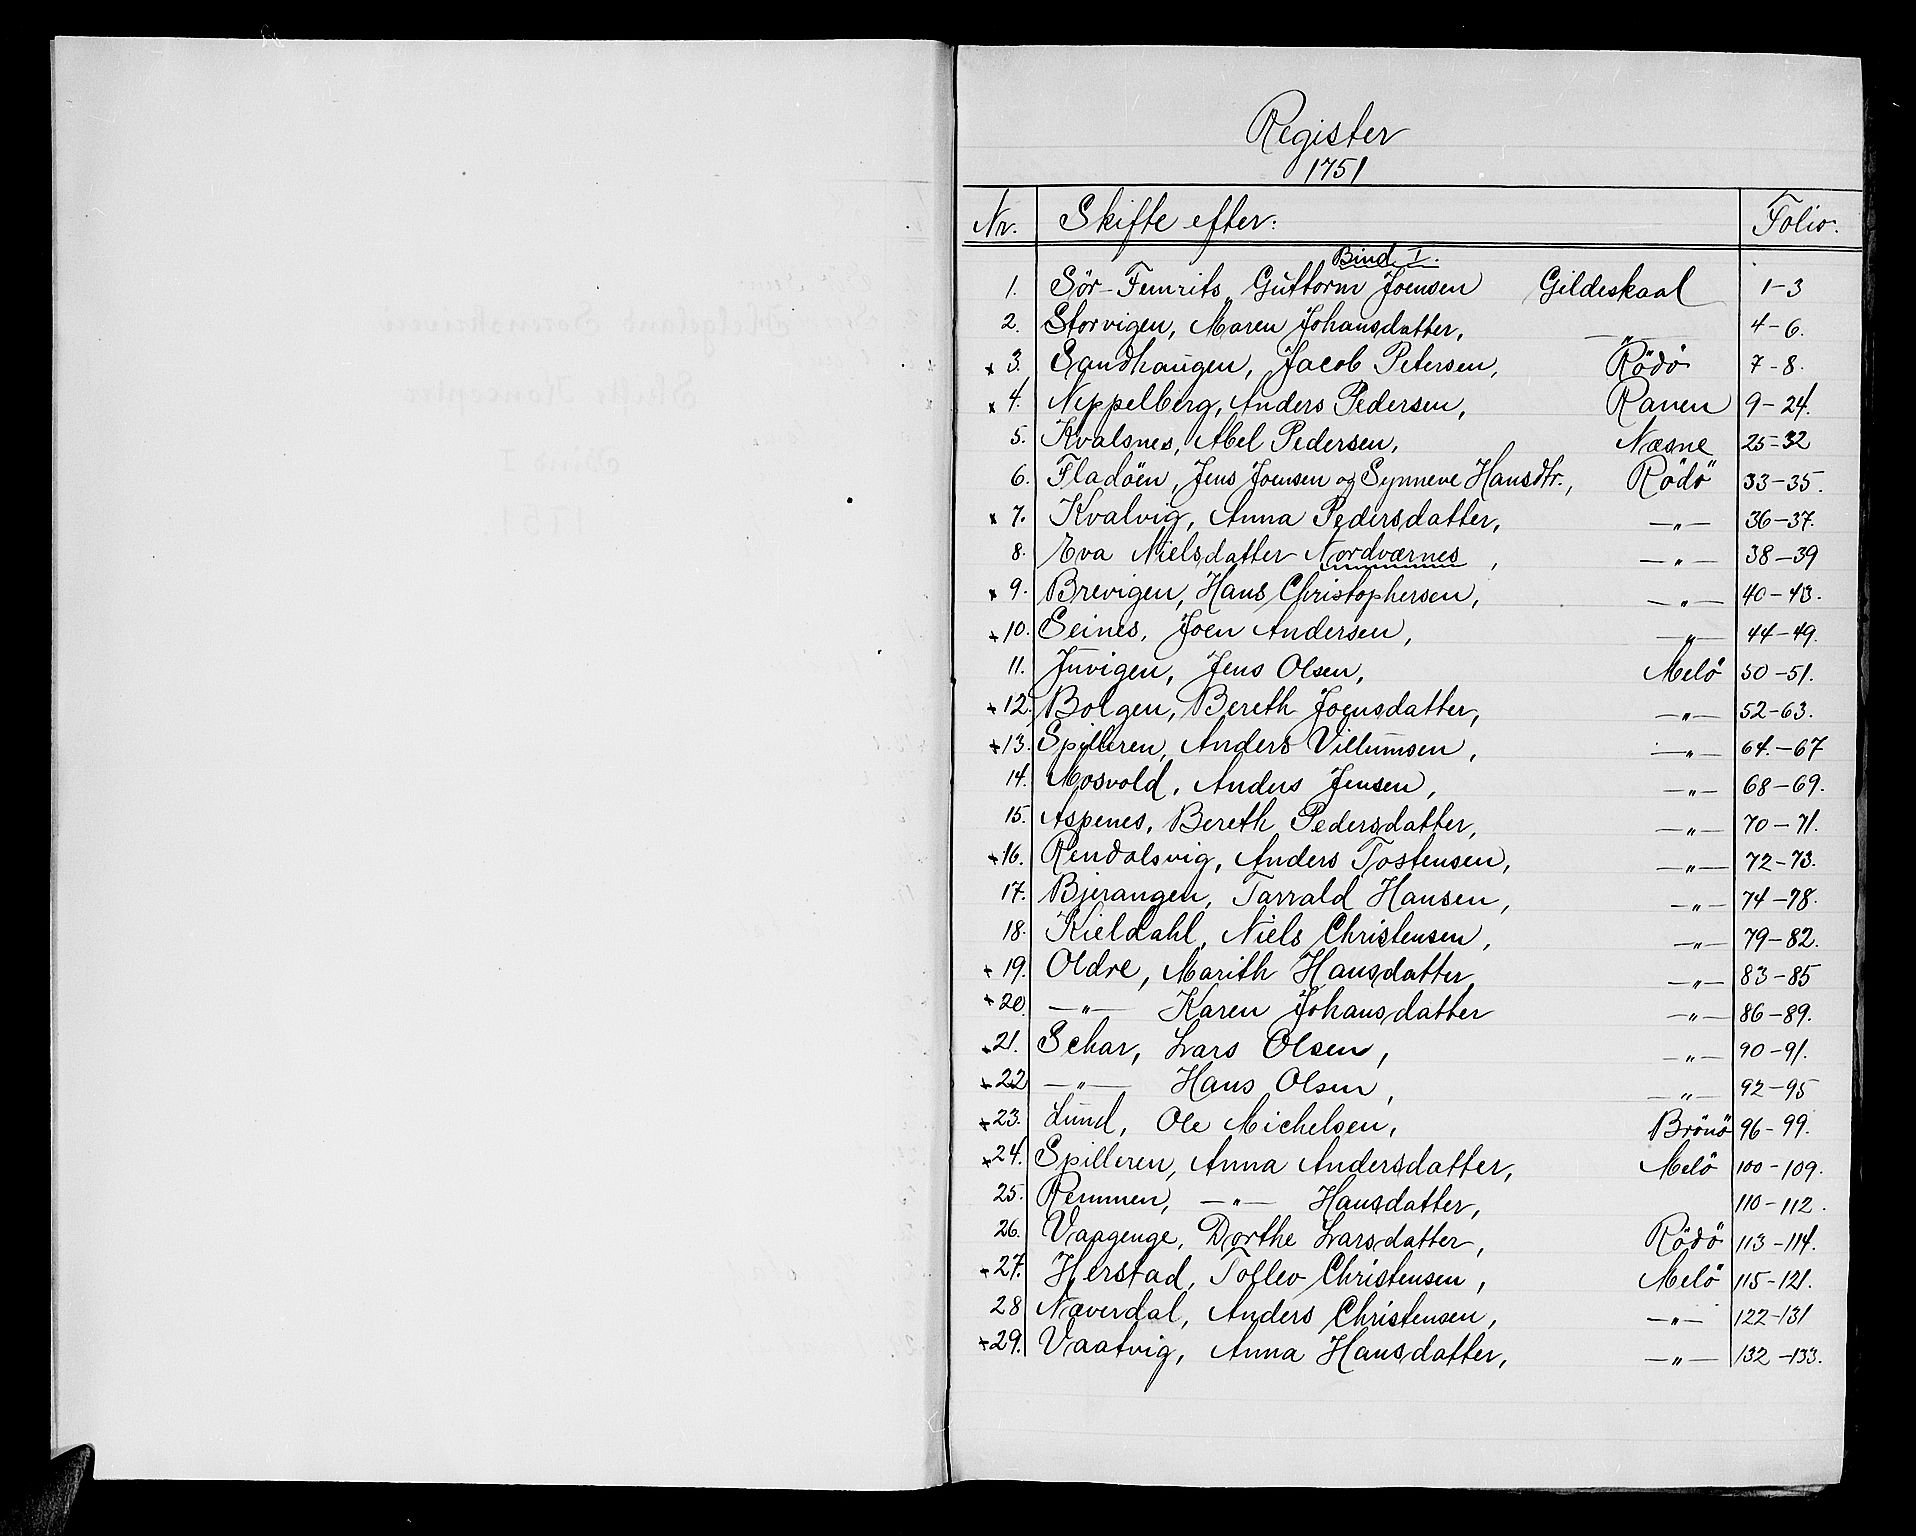 Register
1751
Nr. Skifte efter: Folio.
Bind I.
1. Sör-Femris, Guttorm Joensen Gildeskaal 1-3
2. Storvigen, Maren Johansdatter, —„— 4-6.
x 3. Sandhaugen, Jacob Petersen, Rödö 7-8.
x 4. Neppelberg, Anders Pedersen, Ranen 9-24.
5. Kvalsnes, Abel Pedersen, Næsne 25-32
6. Fladöen, Jens Joensen og Synneve Hansdtr., Rödö 33-35.
x 7. Kvalvig, Anna Pedersdatter, —„— 36-37.
8. Eva Nielsdatter Nordværnes, —„— 38-39
x 9. Brevigen, Hans Christophersen, —„— 40-43.
x 10. Seines, Joen Andersen, —„— 44-49.
11. Juvigen, Jens Olsen, Melö 50-51.
x 12. Bolgen, Bereth Joensdatter, —„— 52-63.
x 13. Spilleren, Anders Villumsen, —„— 64.-67
14. Mosvold, Anders Jensen, —„— 68-69.
15. Aspenes, Bereth Pedersdatter, —„— 70-71.
x 16. Rendalsvig, Anders Tostensen, —„— 72-73.
17. Bjerangen, Tarrald Hansen, —„— 74-78.
18. Kieldahl, Niels Christensen, —„— 79-82.
x 19. Oldre, Marith Hansdatter, —„— 83-85
x 20. —„— Karen Johansdatter —„— 86-89.
x 21. Schar, Lars Olsen, —„— 90-91.
x 22 —„— Hans Olsen, —„— 92-95
x 23. Lund, Ole Michelsen, Brönö 96-99.
x 24. Spilleren, Anna Andersdatter, Melö 100-109.
25. Remmen, —„— Hansdatter, 110-112.
26. Vaagenge, Dorthe Larsdatter, Rödö 113-114.
x 27. Herstad, Tollev Christensen, Melö 115-121.
28 Næverdal, Anders Christensen, —„— 122-131
x 29. Vaatvig, Anna Hansdatter, —„— 132-133.